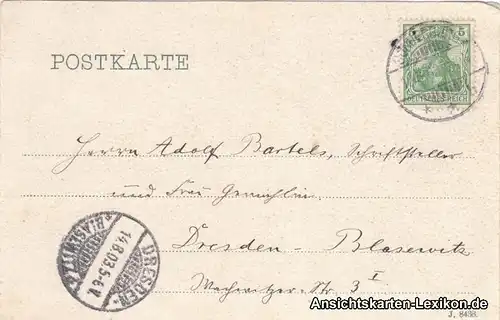 POSTKARTE
5
DEUTSCHES REICH
Herrn Adolf Bartels, Schriftsteller
und Frau Gemahlin
Dresden - Blasewitz
Wachwitzer - Str. 3 I
DRESDEN-BLASEWITZ
14.8.03.5-6N.
Ansichtskarten-Lexikon.de